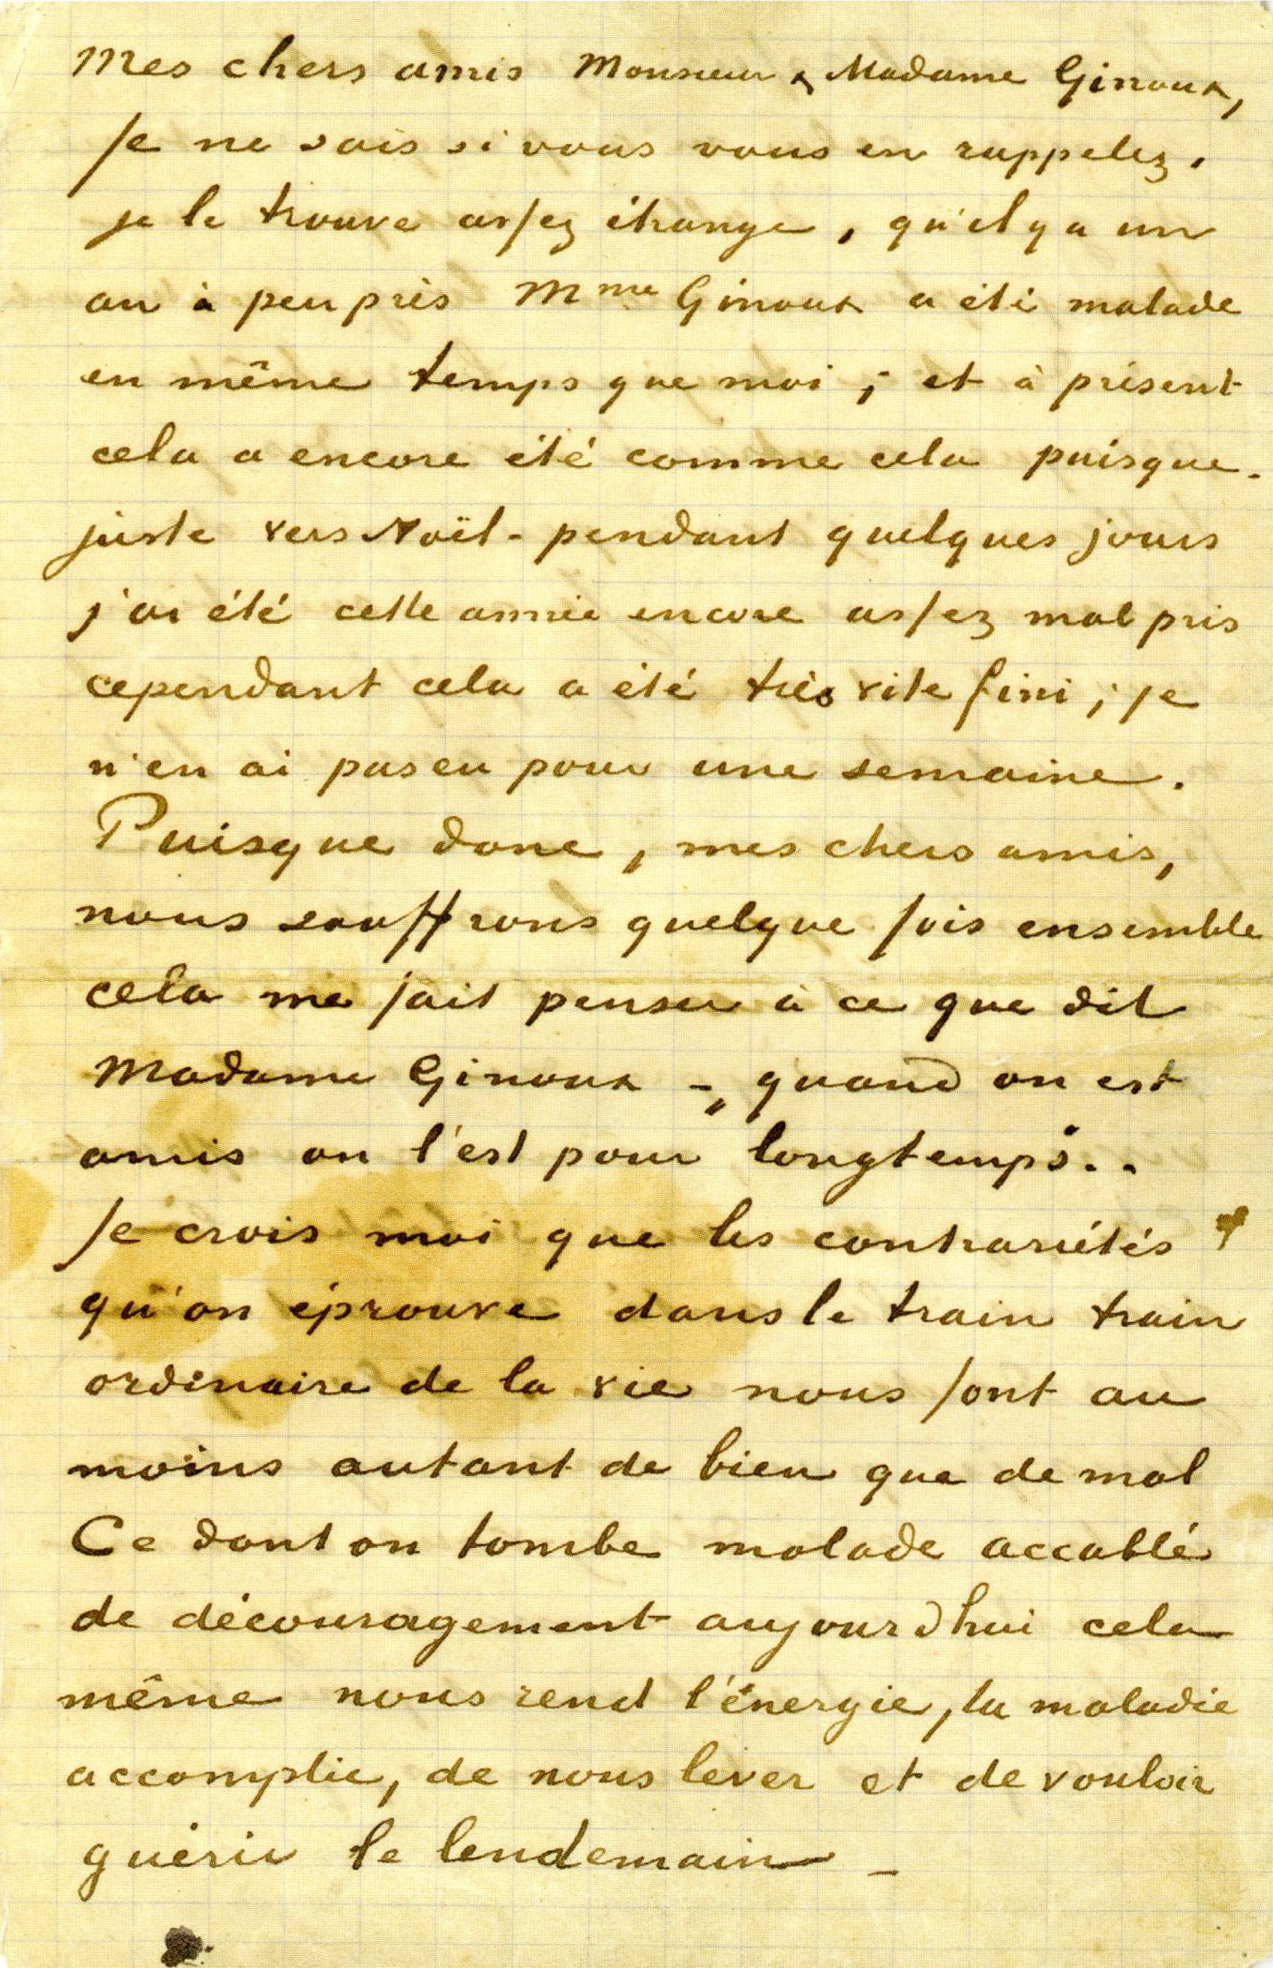 Mes chers amis Monsieur & Madame Ginoux,
Je ne sais si vous vous en rappelez,
je le trouve assez étrange, qu'il y a un
an à peu près Mme Ginoux a été malade
en même temps que moi; et à présent
cela a encore été comme cela puisque -
juste vers Noël - pendant quelques jours
j'ai été cette année encore assez mal pris
cependant cela a été très vite fini; je
n'en ai pas eu pour une semaine.
Puisque donc, mes chers amis,
nous souffrons quelque fois ensemble
cela me fait penser à ce que dit
Madame Ginoux - „quand on est
amis on l'est pour longtemps"..
Je crois moi que les contrariétés
qu'on éprouve dans le train train
ordinaire de la vie nous font au
moins autant de bien que de mal
Ce dont on tombe malade accablé
de découragement aujourdhui cela
même nous rend l'énergie, la maladie
accomplie, de nous lever et de vouloir
guérir le lendemain -